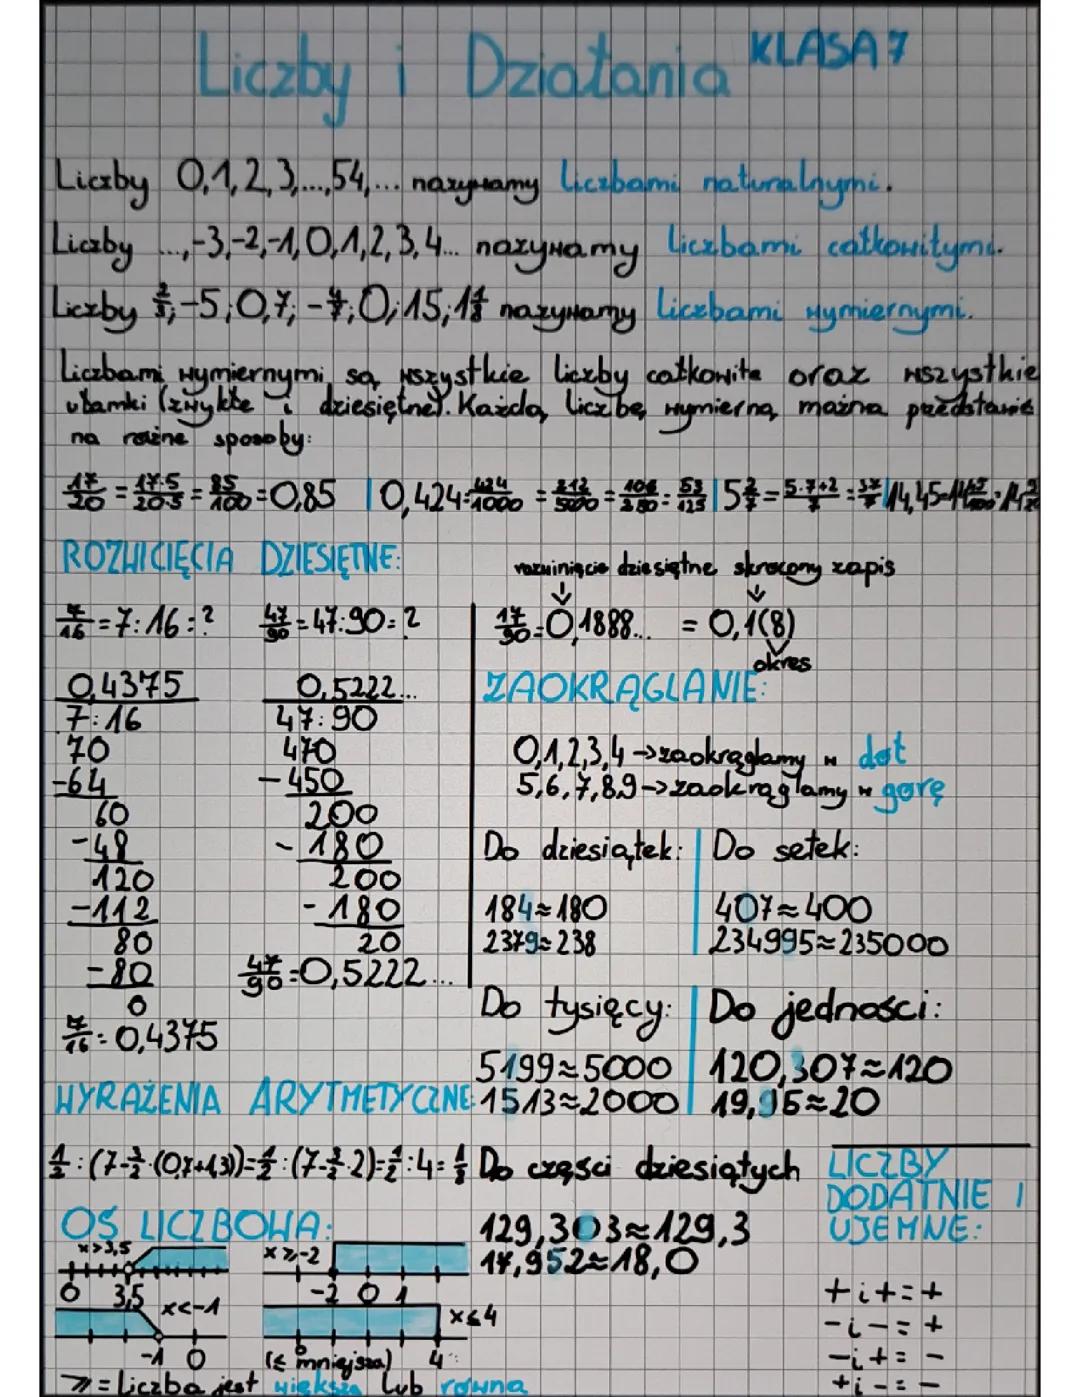 Liczby i Działania KLASA 7
Liczby 0,1,2,3,...,54,... nazywamy liczbami naturalnymi.
Liczby ...,-3,-2,-1,0,1,2,3,4... nazywamy liczbami całkowitymi.
Liczby 2/3; -5; 0,7; -4/7; 0; 15; 1 1/8 nazywamy liczbami wymiernymi.
Liczbami wymiernymi są wszystkie liczby całkowite oraz wszystkie
ułamki (zwykłe i dziesiętne). Każdą liczbę wymierną można przedstawić
na różne sposoby:
17/20 = 17·5/20·5 = 85/100 = 0,85 | 0,424 = 424/1000 = 212/500 = 106/250 = 53/125 | 5 2/7 = 5·7+2/7 = 37/7 | 14,45 = 14 45/100 = 14 9/20
ROZWICIĘCIA DZIESIĘTNE:
7/16 = 7:16 = ? 47/90 = 47:90 = ?
0,4375
7:16
70
-64
60
-48
120
-112
80
-80
0
7/16 = 0,4375
0,5222...
47:90
470
-450
200
-180
200
-180
20
47/90 = 0,5222...
rozwinięcie dziesiętne skrócony zapis
17/90 = 0,1888... = 0,1(8)
okres
ZAOKRĄGLANIE:
0,1,2,3,4 -> zaokrąglamy w dół
5,6,7,8,9 -> zaokrąglamy w górę
Do dziesiątek: Do setek:
184≈180 407≈400
2379≈238 234995≈235000
Do tysięcy: Do jedności:
5199≈5000 120,307≈120
1513≈2000 19,96≈20
WYRAŻENIA ARYTMETYCZNE
1/2 : (7-3/2·(0,7+1,3)) = 1/2 : (7-3/2·2) = 1/2 : 4 = 1/8
Do części dziesiątych
129,303≈129,3
17,952≈18,0
OŚ LICZBOWA:
x>3,5
0 3,5
x≥-2
-2 0 1
x<-1
-1 0
x≤4
0 4
(≤ mniejsza)
≥ = liczba jest większa lub równa
LICZBY
DODATNIE I
UJEMNE:
+ i + = +
- i - = +
- i + = -
+ i - = -